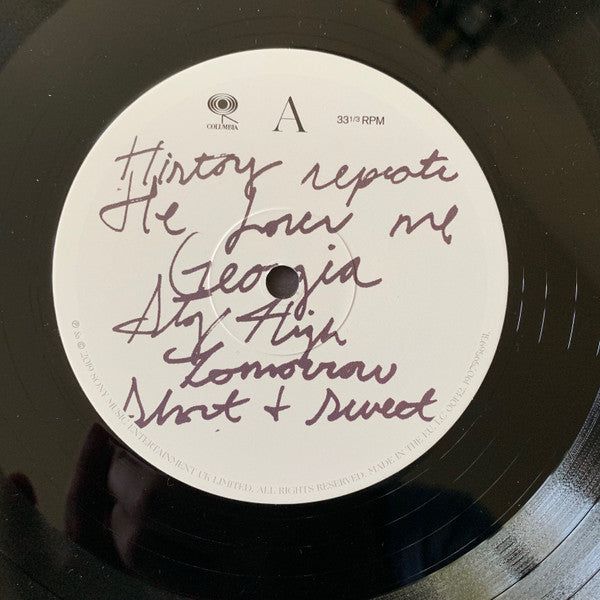 COLUMBIA
A
33 1/3 RPM
History repeats
He loves me
Georgia
Stay High
Tomorrow
Short + sweet
℗ & © 2019 SONY MUSIC ENTERTAINMENT UK LIMITED. ALL RIGHTS RESERVED. MADE IN THE E.U. LC 00162.